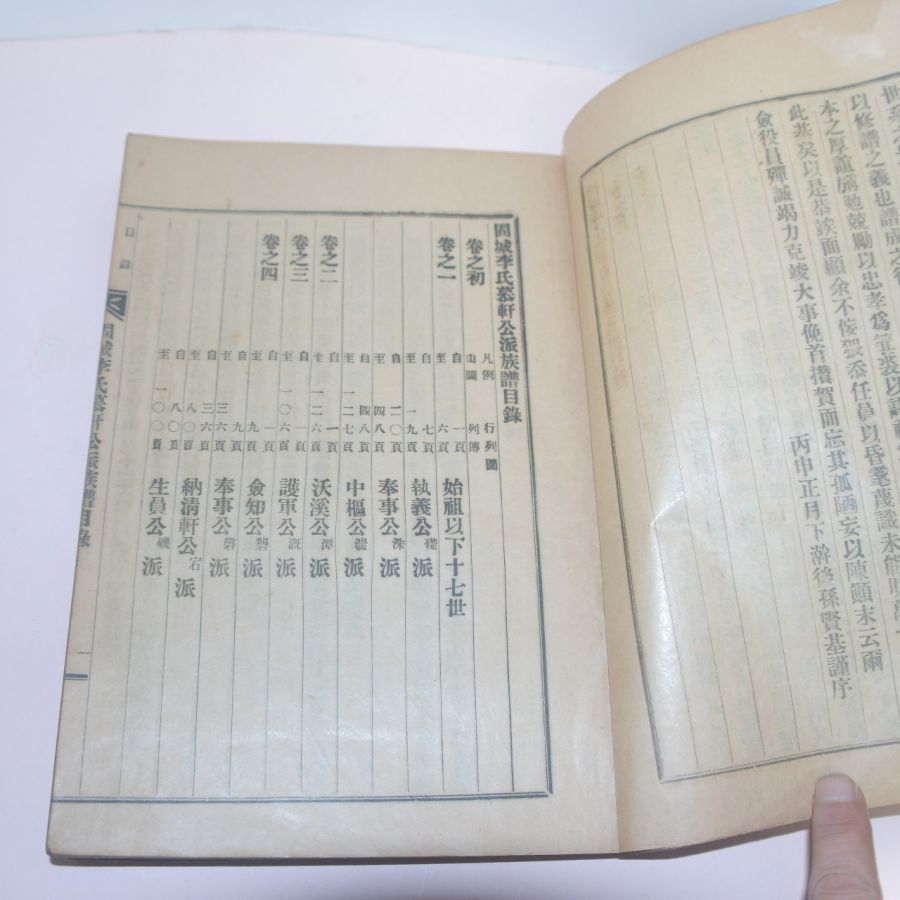 以修譜之義也譜成之
本之厚誼旃勉兢勵以忠孝爲箕裘以詩
此甚矣以是恭竢而顧余不侫猥忝任員以昏耄蔑識未能
僉役員殫誠竭力克竣大事俛首攢賀而忘其孤陋妄以陳顚末云爾
丙申正月下澣後孫賢基謹序
固城李氏慕軒公派族譜目錄
凡例 行列圖
卷之初 山圖 列傳
卷之一 自 一頁 至 六頁 始祖以下十七世
自 七頁 至 一九頁 執義公礎派
自 二〇頁 至 四八頁 奉事公洙派
自 四八頁 至 一二七頁 中樞公 派
卷之二 自 一頁 至 一二六頁 沃溪公潭派
卷之三 自 一頁 至 一〇六頁 護軍公漑派
卷之四 自 一頁 至 九頁 僉知公 派
自 九頁 至 三六頁 奉事公磬派
自 三六頁 至 八〇頁 納清軒公宕派
自 八〇頁 至 一〇〇頁 生員公磯派
目錄
固城李氏慕軒公派族譜目錄
一